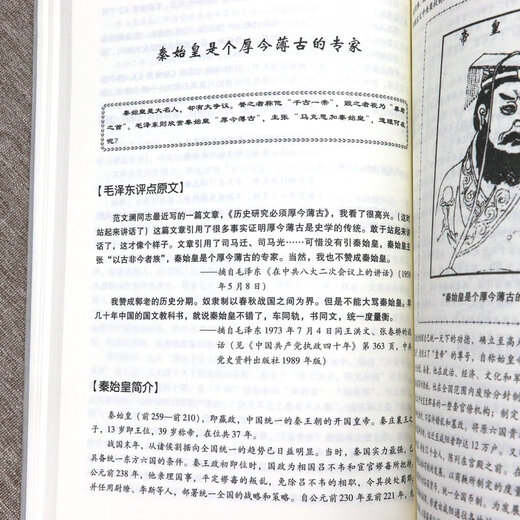 秦始皇是个厚今薄古的专家
秦始皇是大名人，却有大争议。誉之者称他“千古一帝”，毁之者视为“暴君
之首”。毛泽东则欣赏秦始皇“厚今薄古”，主张“马克思加秦始皇”，道理何在
呢？
【毛泽东评点原文】
范文澜同志最近写的一篇文章，《历史研究必须厚今薄古》，我看了很高兴。（这时
站起来讲话了）这篇文章引用了很多事实证明厚今薄古是史学的传统。敢于站起来讲话
了，这才像个样子。文章引用了司马迁、司马光……可惜没有引秦始皇，秦始皇主
张“以古非今者族”，秦始皇是个厚今薄古的专家。当然，我也不赞成秦始皇。
——摘自毛泽东《在中共八大二次会议上的讲话》（1958
年5月8日）
我赞成郭老的历史分期。奴隶制以春秋战国之间为界。但是不能大骂秦始皇。早
几十年中国的国文教科书，就说秦始皇不错了，车同轨，书同文，统一度量衡。
——摘自毛泽东1973年7月4日同王洪文、张春桥的谈
话（见《中国共产党执政四十年》第363页，中共
党史资料出版社1989年版）
【秦始皇简介】
秦始皇（前259—前210），即嬴政，中国统一的秦王朝的开国皇帝。秦庄襄王之
子，13岁即王位，39岁称帝，在位共37年。
战国末年，从诸侯割据向全国统一的趋势已日益明显。当时，秦国实力最强，已
具备统一东方六国的条件。秦王政初即位时，国政为相国吕不韦和宦官嫪毐所把持。
公元前238年，他亲理国事，平定嫪毐的叛乱，免除吕不韦的相职，令其徙处蜀郡，
并任用尉缭、李斯等人，部署统一全国的战略和策略。自公元前230年至前221年，先
帝 皇
“秦始皇是个厚今薄古的